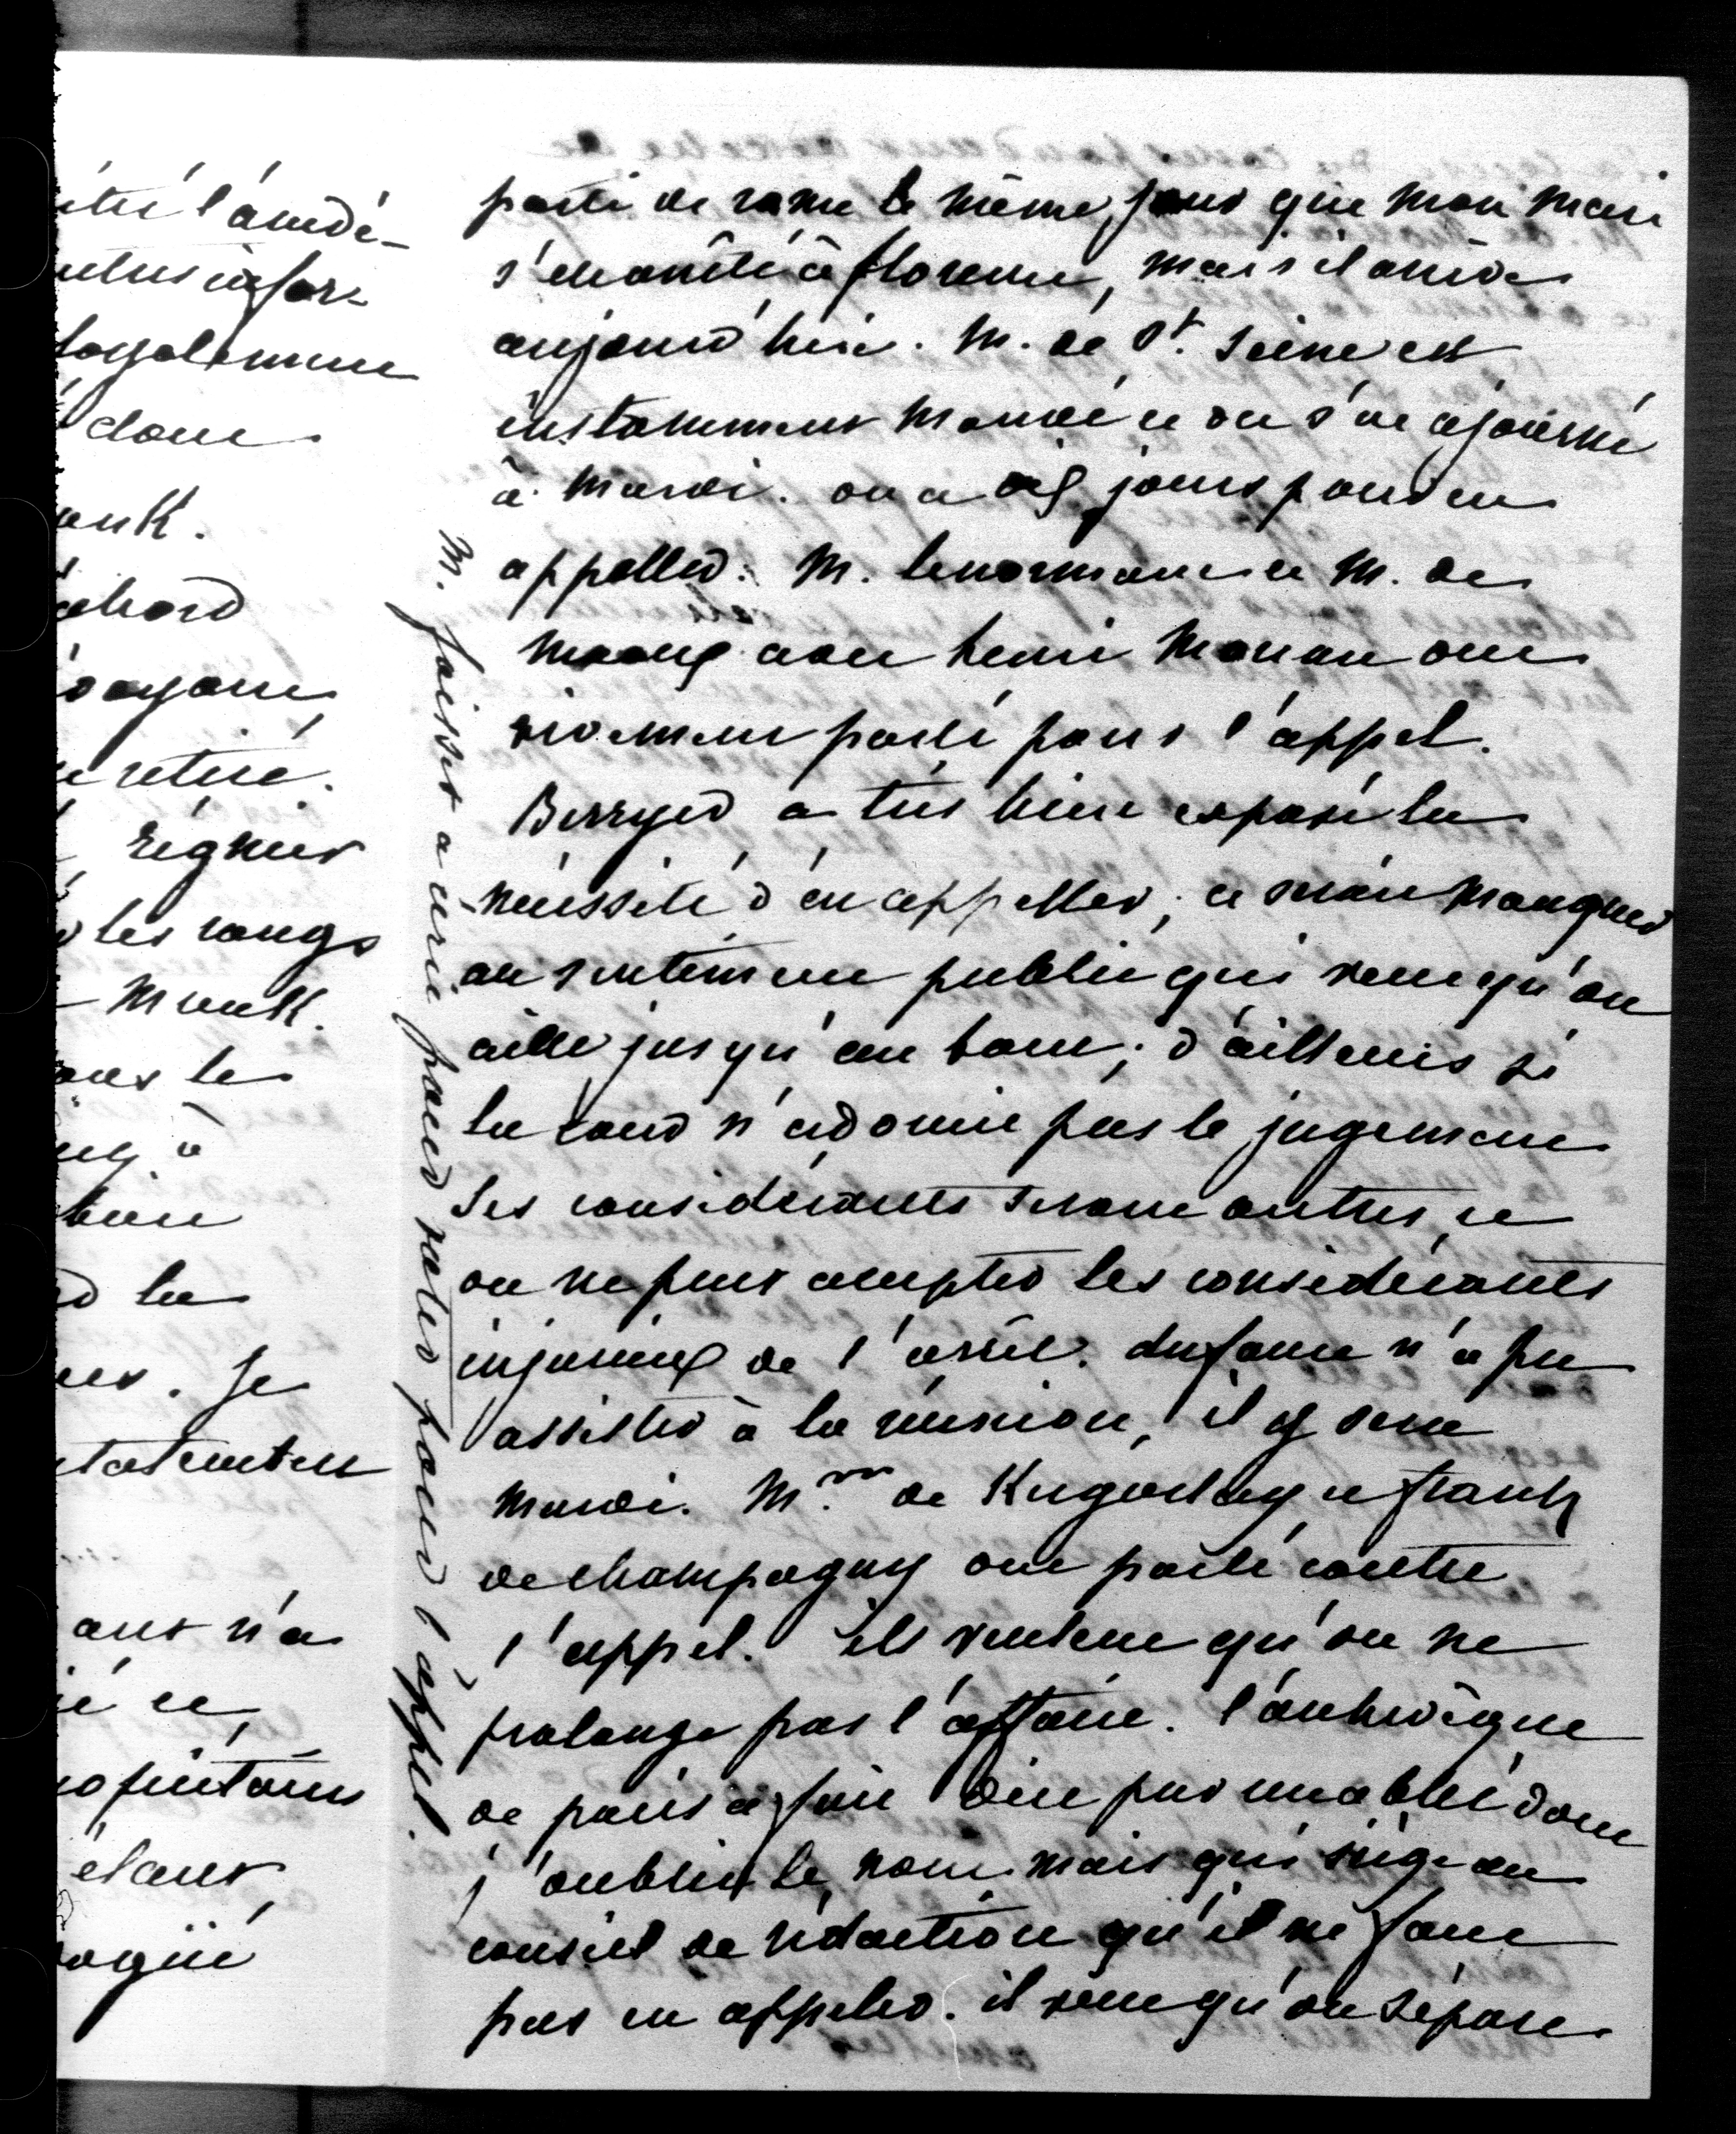 itié l'amdé-
utres infor-
loyalement
donc
unk.
abord
voyant
e retiré.
régner
les rangs
Munk.
ous le
à
bien
la
. Je
tatenten
aux n'a
ié et
opriétaires
étant
ogué
parti de rome le même jour que mon mari
s'est arrêté à florence, mais il arrive
aujourd'hui. M. de St. Seine est
instamment mandé et on s'est ajourné
à mardi. on a dix jours pour en
appeller. M. lenormant et M. de
Mouy avec henri Moreau ont
vivement parlé pour l'appel.
Berryer a très bien exposé la
nécessité d'en appeller, ce serait manquer
au sentiment public qui veut qu'on
aille jusqu'au bout; d'ailleurs si
la cour n'adoucit pas le jugement
les considérants seront autres, et
on ne peut accepter les considérants
injurieux de l'arrêt. dufaure n'a pu
assister à la réunion, il y sera
mardi. Mrs. de Kergorlay et frantz
de champagny ont parlé contre
l'appel. ils veulent qu'on ne
prolonge pas l'affaire. l'archevêque
de paris a fait dire par un abbé dont
j'oublie le nom mais qui siège au
conseil de rédaction qu'il ne faut
pas en appeler. il veut qu'on sépare
M. foisset a écrit pour voter pour l'appel.